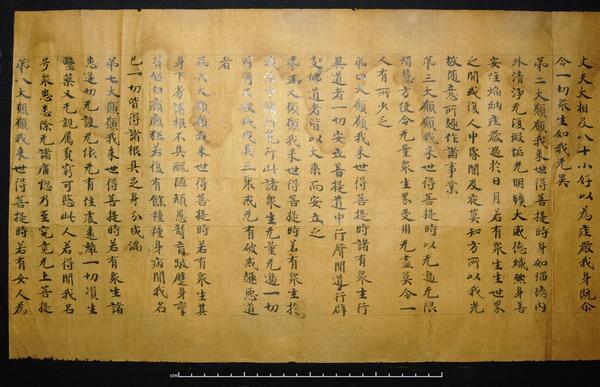 丈夫大相及八十小好以為莊嚴我身既尒
令一切衆生如我无異
第二大願願我來世得菩提時身如琉璃內
外清淨无復瑕垢光明曠大威德熾然身善
安住焰網莊嚴過於日月若有衆生生世界
之間或復人中昏闇及夜莫知方所以我光
故隨意所趣作諸事業
第三大願願我來世得菩提時以无邊无限
智慧方便令无量衆生界受用无盡莫令一
人有所少乏
第四大願願我來世得菩提時諸有衆生行
異道者一切安立菩提道中行聲聞道行辟
支佛道者皆以大乘而安立之
第五大願願我來世得菩提時若有衆生於
我法中修行梵行此諸衆生无量无邊一切
皆得不缺戒具三聚戒无有破戒趣惡道
者
第六大願願我來世得菩提時若有衆生其
身下劣諸根不具醜陋頑愚聾盲跛躄身攣
背傴白癩癲狂若復有餘種種身病聞我名
已一切皆得諸根具足身分成滿
第七大願願我來世得菩提時若有衆生諸
患逼切无護无依无有住處遠離一切資生
醫藥又无親屬貧窮可愍此人若得聞我名
号衆患悉除无諸痛惱乃至究竟无上菩提
第八大願願我來世得菩提時若有女人為
cm